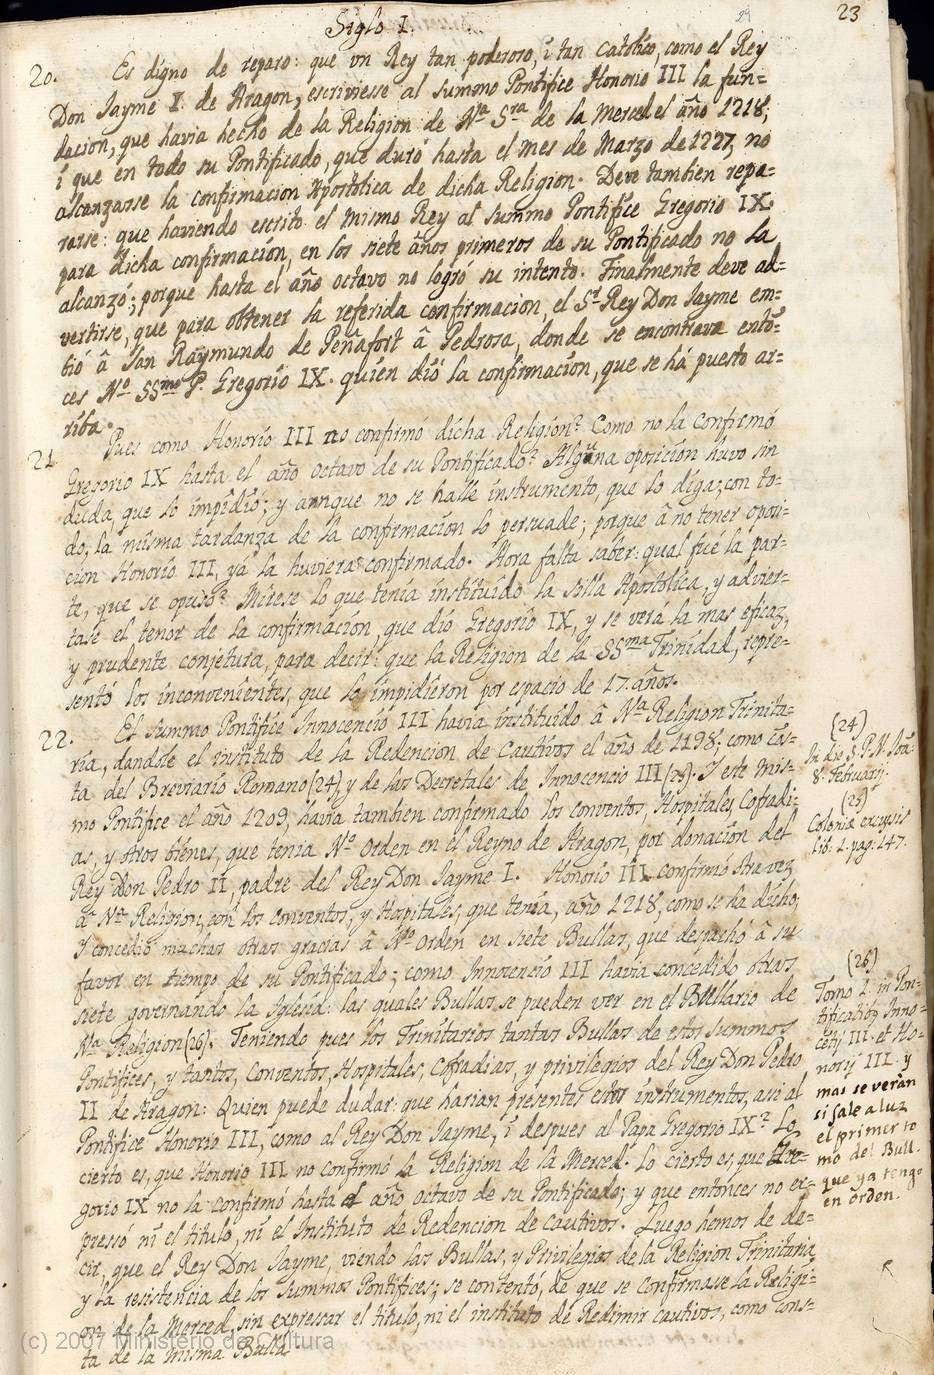 Siglo I.
29
23
20. Es digno de reparo: que un Rey tan poderoso, i tan Catolico, como el Rey
Don Jayme I. de Aragon, escriviesse al summo Pontifice Honorio III la fun=
dacion, que havia hecho de la Religion de Nª Sra de la Merced el año 1218;
i que en todo su Pontificado, que duró hasta el mes de Marzo de 1227, no
alcanzasse la confirmacion Apostolica de dicha Religion. Deve tambien repa=
rarse: que haviendo escrito el mismo Rey al summo Pontifice Gregorio IX.
para dicha confirmacion, en los siete años primeros de su Pontificado no la
alcanzó; porque hasta el año octavo no logró su intento. Finalmente deve ad=
vertirse, que para obtener la referida confirmacion, el Sr Rey Don Jayme em=
bió â San Raymundo de Peñafort â Pedrosa, donde se encontrava entõ=
ces Nº SSmo P. Gregorio IX. quien dió la confirmacion, que se há puesto ar=
riba.
21. Pues como Honorio III no confirmó dicha Religion? Como no la confirmó
Gregorio IX hasta el año octavo de su Pontificado? Alguna oposicion huvo sin
duda, que lo impidió; y aunque no se halle instrumento, que lo diga; con to=
do, la misma tardanza de la confirmacion lo persuade; porque â no tener oposi=
cion Honorio III, yá la huviera confirmado. Aora falta saber: qual fué la par=
te, que se opuso? Mirese lo que tenia instituido la Silla Apostolica, y advier=
tase el tenor de la confirmacion, que dió Gregorio IX, y se verá la mas eficaz,
y prudente conjetura, para decir: que la Religion de la SSma Trinidad, repre=
sentó los inconvenientes, que lo impidieron por espacio de 17. años.
22. El Summo Pontifice Innocencio III havia instituido â Nª Religion Trinita=
ria, dandole el instituto de la Redencion de Cautivos el año de 1198; como cõs=
ta del Breviario Romano (24), y de los Decretales de Innocencio III (25). Y este mis=
mo Pontifice el año 1209, havia tambien confirmado los conventos, Hospitales, Cofradi=
as, y otros bienes, que tenia Nº Orden en el Reyno de Aragon, por donacion del
Rey Don Pedro II, padre del Rey Don Jayme I. Honorio III confirmó otra vez
â Nª Religion, con los conventos, y Hospitales, que tenia, año 1218, como se ha dicho;
Y concedio muchas otras gracias â Nº Orden en siete Bullas, que despachó â su
favor en tiempo de su Pontificado; como Innocencio III havia concedido otras
siete governando la Iglesia: las quales Bullas se pueden ver en el Bullario de
Nª Religion (26). Teniendo pues los Trinitarios tantas Bullas de estos Summos
Pontifices, y tantos, Conventos, Hospitales, Cofradias, y privilegios del Rey Don Pedro
II de Aragon: Quien puede dudar: que harian presentes estos instrumentos, asi al
Pontifice Honorio III, como al Rey Don Jayme, i despues al Papa Gregorio IX? Lo
cierto es, que Honorio III no confirmó la Religion de la Merced. Lo cierto es, que Gre=
gorio IX no la confirmó hasta el año octavo de su Pontificado; y que entonces no ex=
pressó ni el titulo, ni el Instituto de Redencion de cautivos. Luego hemos de de=
cir, que el Rey Don Jayme, viendo las Bullas, y Privilegios de la Religion Trinitaria,
y la resistencia de los Summos Pontifices; se contentó, de que se confirmasse la Religi=
on de la Merced, sin expressar el titulo, ni el instituto de Redimir cautivos, como cons=
ta de la misma Bulla.
(24)
In die S. P. N. Joã:
8. Februarij.
(25)
Coloniæ excusis
lib: 1. pag: 247.
(26)
Tomo 1. in Pon=
tificatib9 Inno=
cẽtij III. et Ho=
norij III. y
mas se verán
si sale a luz
el primer to
mo del Bull.
que ya tengo
en orden.
(c) 2007 Ministerio de Cultura